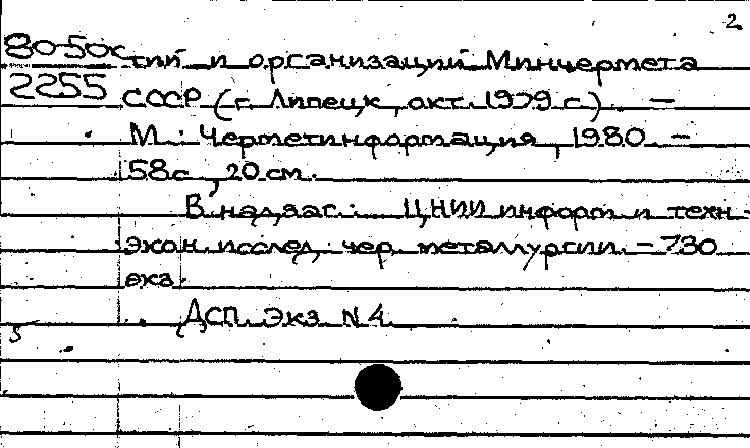 2
80-50с тий и организаций Минчермета
2255 СССР (г. Липецк, окт. 1979 г.). —
М.: Черметинформация, 1980. —
58с., 20 см.
В надзаг.: ЦНИИ информ и техн.-
экон. исслед. чер. металлургии. — 730
экз.
ДСП. Экз. N 4.
5